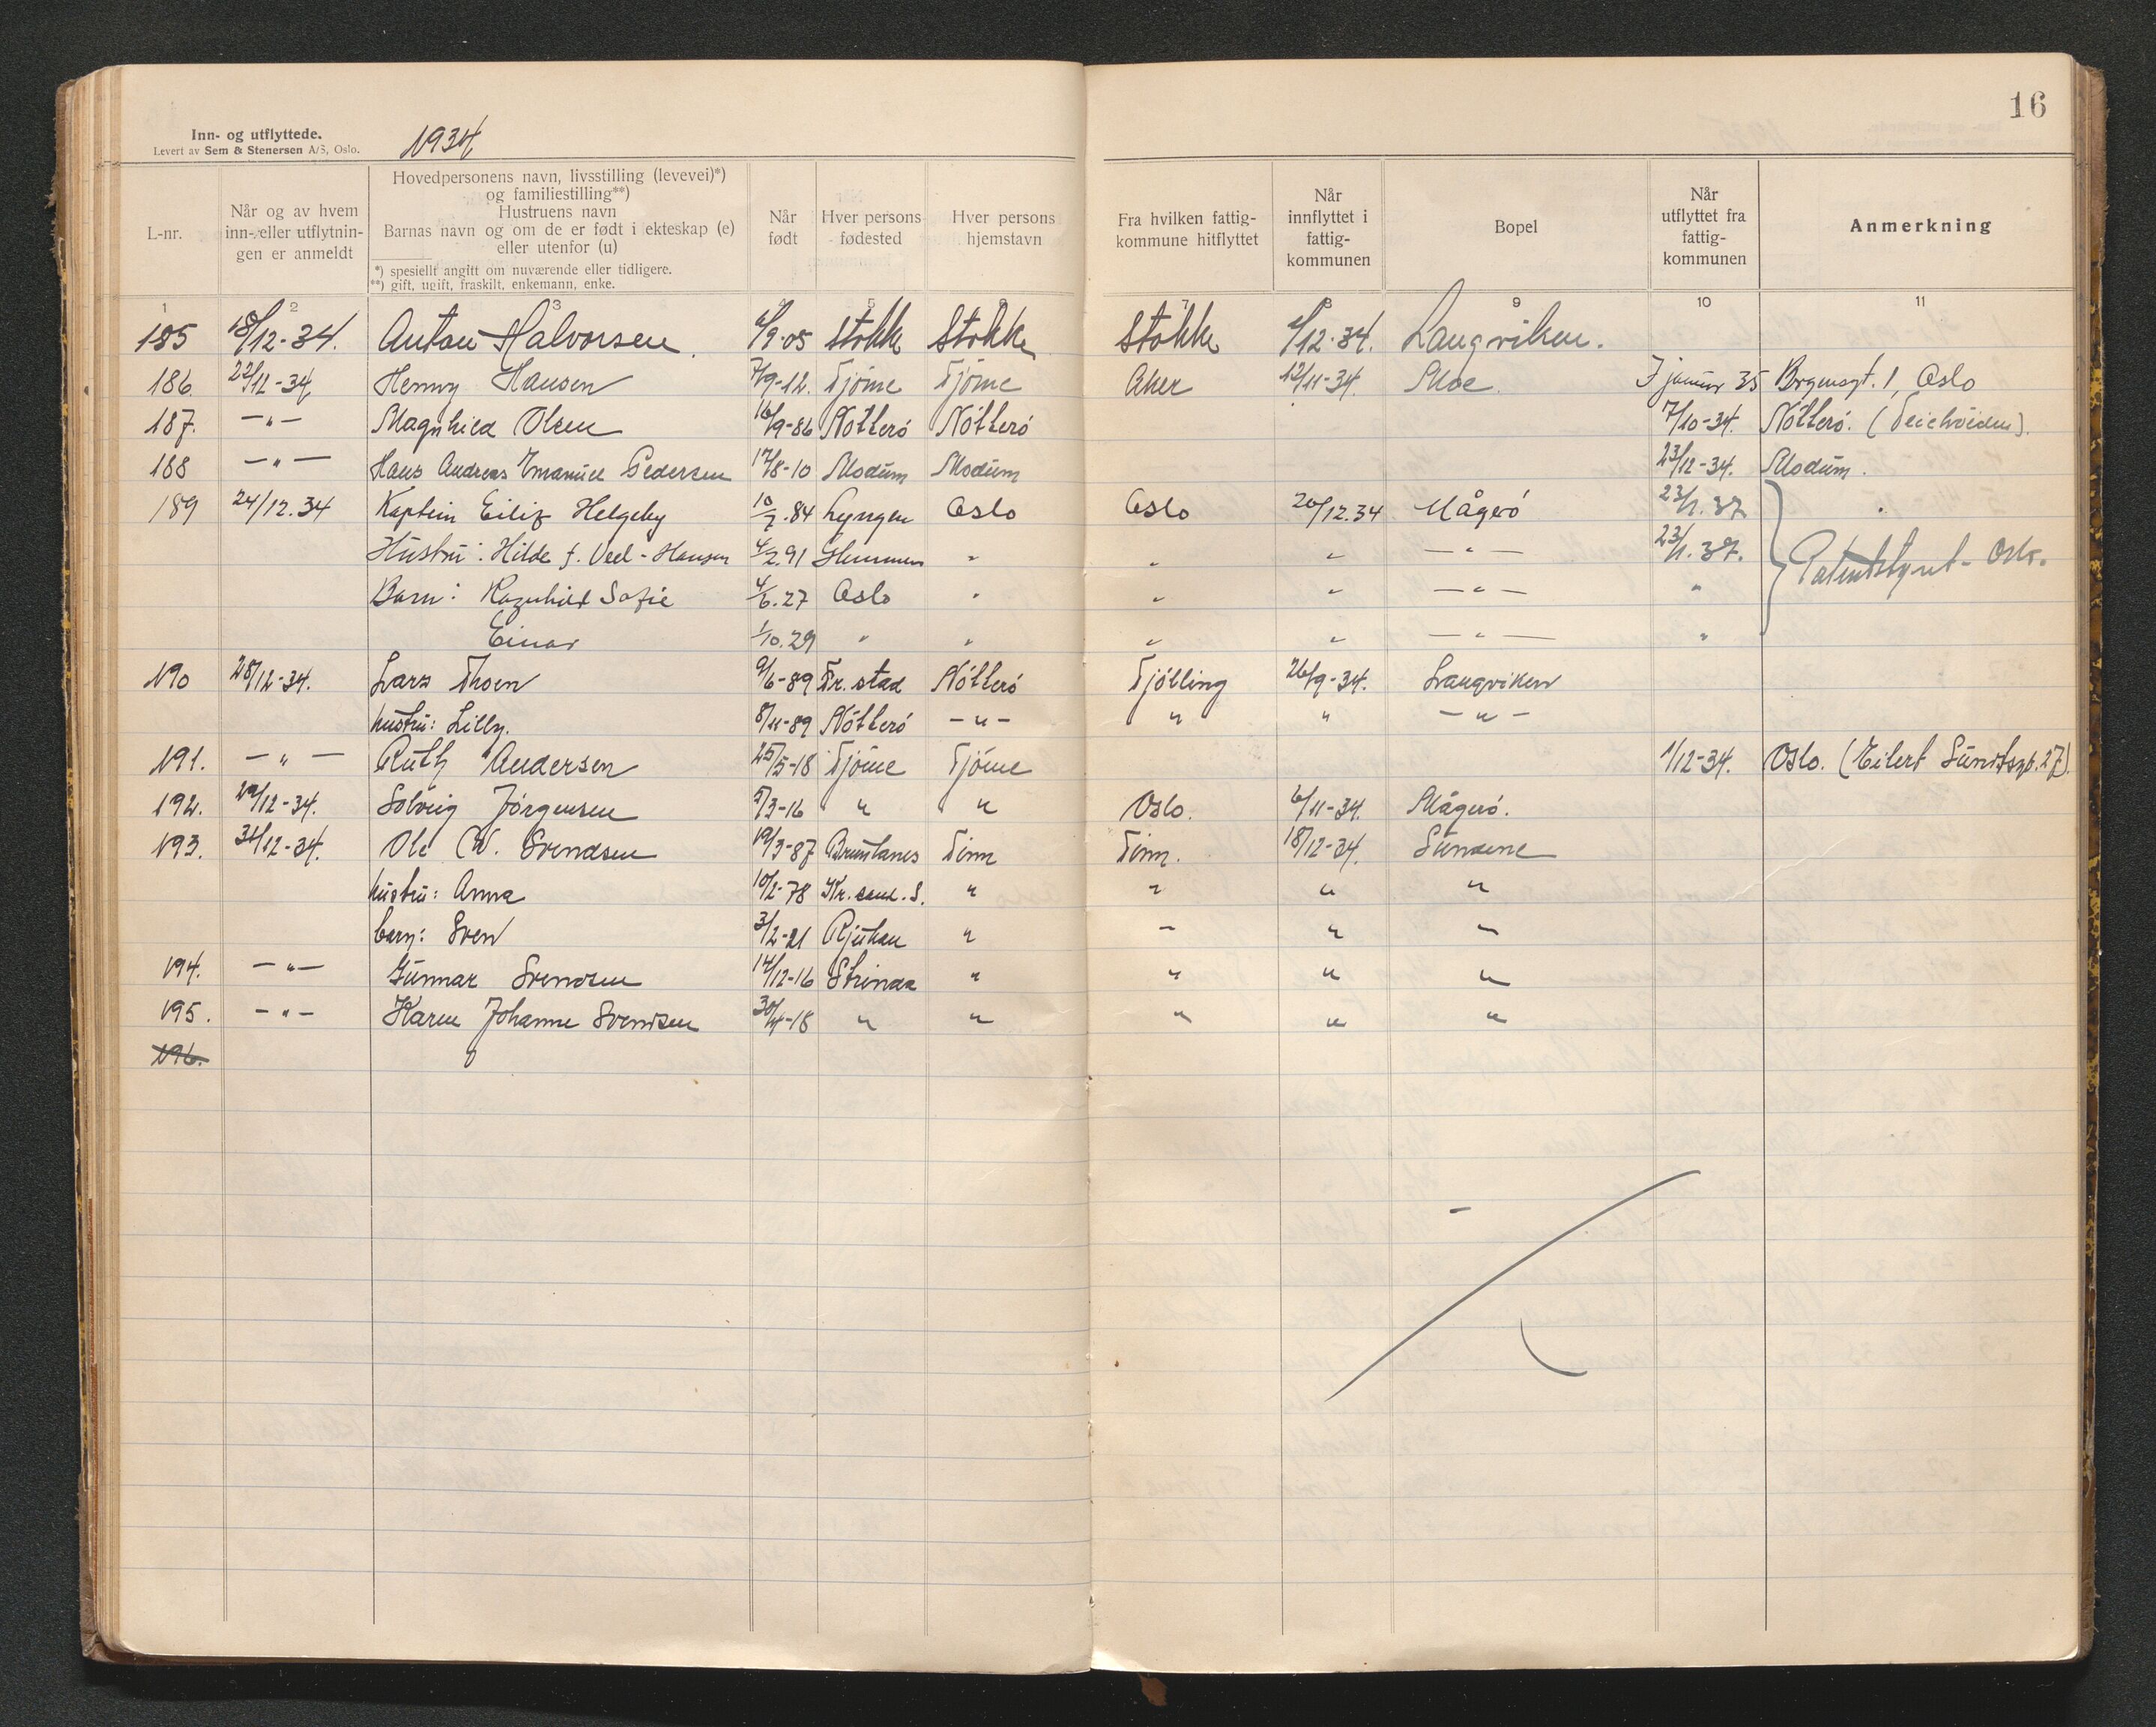 16
Inn- og utflyttede.
Levert av Sem & Stenersen A/S, Oslo.
1934
L-nr.
Når og av hvem inn- eller utflytningen er anmeldt
Hovedpersonens navn, livsstilling (levevei)*)
og familiestilling**)
Hustruens navn
Barnas navn og om de er født i ekteskap (e)
eller utenfor (u)
*) spesiellt angitt om nuværende eller tidligere.
**) gift, ugift, fraskilt, enkemann, enke.
Når født
Hver persons fødested
Hver persons hjemstavn
Fra hvilken fattig-
kommune hitflyttet
Når innflyttet i fattig-kommunen
Bopel
Når utflyttet fra fattig-kommunen
Anmerkning
1 2 3 5 7 8 9 10 11
185 18/12-34. Anton Halvorsen. /9-05 Stokke Stokke Stokke /12-34. Langviken.
186. 22/11-34 Henny Hansen 7/9-12. Tjöme Tjöme Aker 12/11-34. Moe. 3 januar 35 Brgensgt. 1, Oslo
187. -"- Magnhild Olsen 16/9-86 Nötterö Nötterö 7/10-34. Nötterö. (Teiehöiden).
188 -"- Hans Andreas Emanuel Pedersen 17/8-10 Modum Modum 23/12-34. Modum.
189 24/12.34 Kaptein Eilif Helgeby 10/7.84 Lyngen Oslo Oslo 20/12.34 Mågerö 23/1.37
Hustru: Hilde f. Veel-Hansen 4/2.91 Glemmen " " " -"- 23/1.37. Patentstyret - Oslo.
Barn: Ragnhild Sofie 4/6.27 Oslo " " " -"- "
Einar 1/10.29 " " " " -"- "
190 28/12-34. Lars Thoen 9/6-89 Fr.stad Nötterö Tjölling 26/9-34. Langviken
hustru: Lilly. 8/11-89 Nötterö -"- " " -"-
191. -"- Ruth Andersen 25/5-18 Tjöme Tjöme 1/12-34. Oslo. (Eilert Sundtsgt. 27).
192. 29/12-34. Solveig Jörgensen 5/3-16 " " Oslo. 6/11-34. Mågerö.
193. 31/12-34. Ole W. Svendsen 19/3-87 Brunlanes Tinn Tinn. 18/12-34. Sundene
hustru: Anna 10/2-78 Kr.sand.S. " " " "
barn: Sven 3/2-21 Rjukan " " " "
194. -"- Gunnar Svendsen 14/12-16 Strinda " " " "
195. -"- Karen Johanne Svendsen 30/4-18 " " " " "
196.